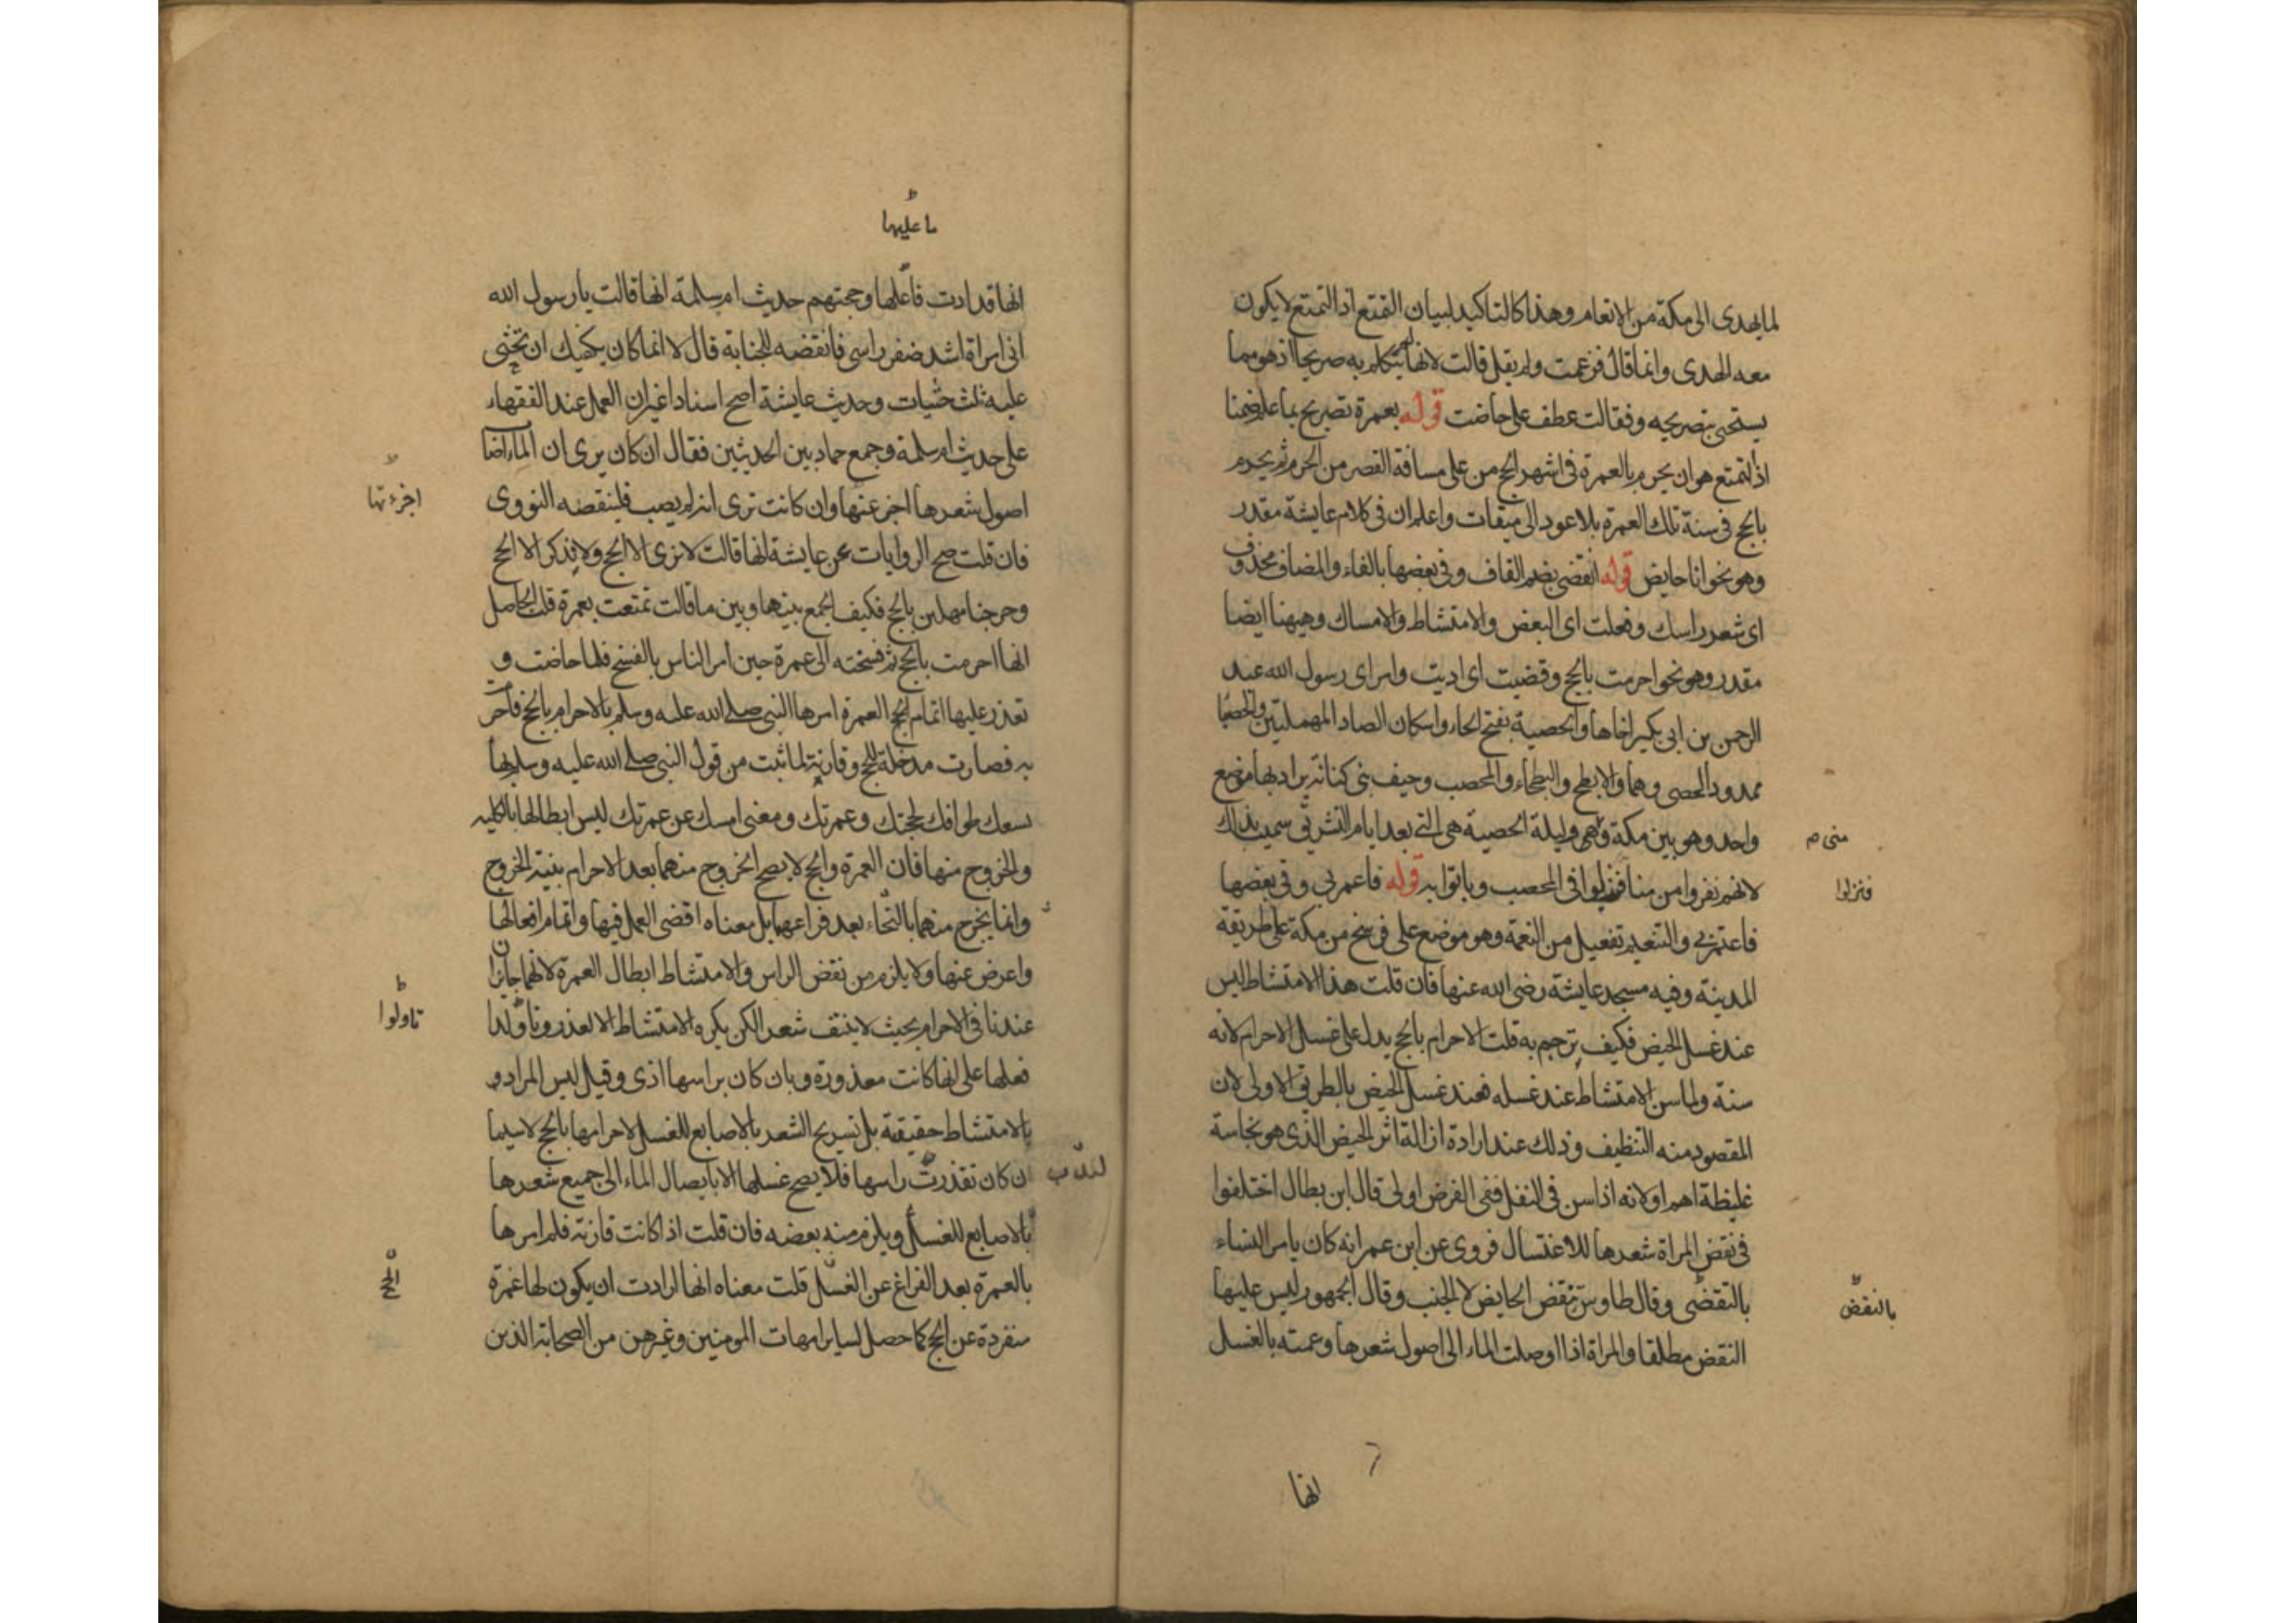 لما يهدى الى مكة من الانعام وهذا كالتاكيد لبيان التمتع اذ التمتع لا يكون
معه الهدى وانما قال فزعمت ولم يقل قالت لانها لم يتكلم به صريحا اذ هو مما
يستحى بتصريحه وفقالت عطف على حاضت قوله بعمرة تصريح بما علم ضمنا
اذ التمتع هو ان يحرم بالعمرة فى اشهر الحج من على مسافة القصر من الحرم ثم يحرم
بالحج فى سنة تلك العمرة بلا عود الى ميقات واعلم ان فى كلام عايشة مقدر
وهو نحو انا حايض قوله انقضى بضم القاف وفى بعضها بالفاء والمضاف محذوف
اى شعر راسك وفعلت اى البعض والامتشاط والامساك وهيهنا ايضا
مقدر وهو نحو احرمت بالحج وقضيت اى اديت وامر اى رسول الله عبد
الرحمن بن ابى بكير اخاها والحصبة بفتح الحاء واسكان الصاد المهملتين والحصبا
ممدود الحصى وهما والابطح والبطحاء والمحصب وخيف بنى كنانة يراد بها موضع
واحد وهو بين مكة وهى وليلة الحصبة هى التى بعد ايام التشريق سميت بذلك
منى م
لانهم نفروا من منا فنزلوا فى المحصب وباتوا به قوله فاعمرنى وفى بعضها
فنزلوا
فاعتمرنى والتنعيم تفعيل من النعمة وهو موضع على فرسخ من مكة على طريقة
المدينة وفيه مسجد عايشة رضى الله عنها فان قلت هذا الامتشاط ليس
عند غسل الحيض فكيف ترجم به قلت الاحرام بالحج يدل على غسل الاحرام لانه
سنة ولما سن الامتشاط عند غسله فعند غسل الحيض بالطريق الاولى لان
المقصود منه التنظيف وذلك عند ارادة ازالة اثر الحيض الذى هو نجاسة
غليظة اهم او لانه اذا سن فى النفل ففى الفرض اولى قال ابن بطال اختلفوا
فى نقض المراة شعرها للاغتسال فروى عن ابن عمر انه كان يامر النساء
بالنقضى وقال طاوس تنقض الحايض لا الجنب وقال الجمهور ليس عليها
بالنقض
النقض مطلقا والمراة اذا اوصلت الماء الى اصول شعرها وعمته بالغسل
انها
ما عليها
انها قد ادت فاعلها وحجتهم حديث ام سلمة انها قالت يا رسول الله
انى امراة اشد ضفر راسى فانقضه للجنابة قال لا انما كان يكفيك ان تحثى
عليه ثلث حثيات وحديث عايشة اصح اسنادا غير ان العمل عند الفقهاء
على حديث ام سلمة وجمع حماد بين الحديثين فقال ان كان يرى ان الماء اصا
اصول شعرها اجز عنها وان كانت ترى انه لم يصب فلينقضه النووى
فان قلت صح الروايات عن عايشة انها قالت لا نرى الا الحج ولا نذكر الا الحج
وخرجنا مهلين بالحج فكيف الجمع بينها وبين ما قالت تمتعت بعمرة قلت الحاصل
انها احرمت بالحج ثم فسخته الى عمرة حين امر الناس بالفسخ فلما حاضت و
تعذر عليها اتمام الحج العمرة امرها النبى صلى الله عليه وسلم بالاحرام بالحج فاحرمت
به فصارت مدخلة للحج وقارنة لما ثبت من قول النبى صلى الله عليه وسلم لها
يسعك طوافك لحجتك وعمرتك ومعنى امسك عن عمرتك ليس ابطالها بالكليه
والخروج منها فان العمرة والحج لا يصح الخروج منهما بعد الاحرام بنية الخروج
وانما يخرج منهما بالتحاء بعد فراغهما بل معناه اقضى العمل فيها واتمام افعالها
واعرض عنها ولا يلزم من نقض الراس والامتشاط ابطال العمرة لانهما جايزان
عندنا فى الاحرام بحيث لا ينتف شعر الكن يكره الامتشاط الا لعذر وتاولدا
تاولوا
فعلها على انها كانت معذورة وبان كان براسها اذى وقيل ليس المراد و
بالامتشاط حقيقة بل تسريح الشعر بالاصابع للغسل لاحرامها بالحج لا سيما
ن كان تقذرت راسها فلا يصح غسلها الا بايصال الماء الى جميع شعرها
بالاصابع للغسل ويلزم منه بعضه فان قلت اذا كانت قارنة فلم امرها
بالعمرة بعد الفراغ عن الغسل قلت معناه انها ارادت ان يكون لها عمرة
الحج
منفردة عن الحج كما حصل لساير امهات المومنين وغيرهن من الصحابة الذين